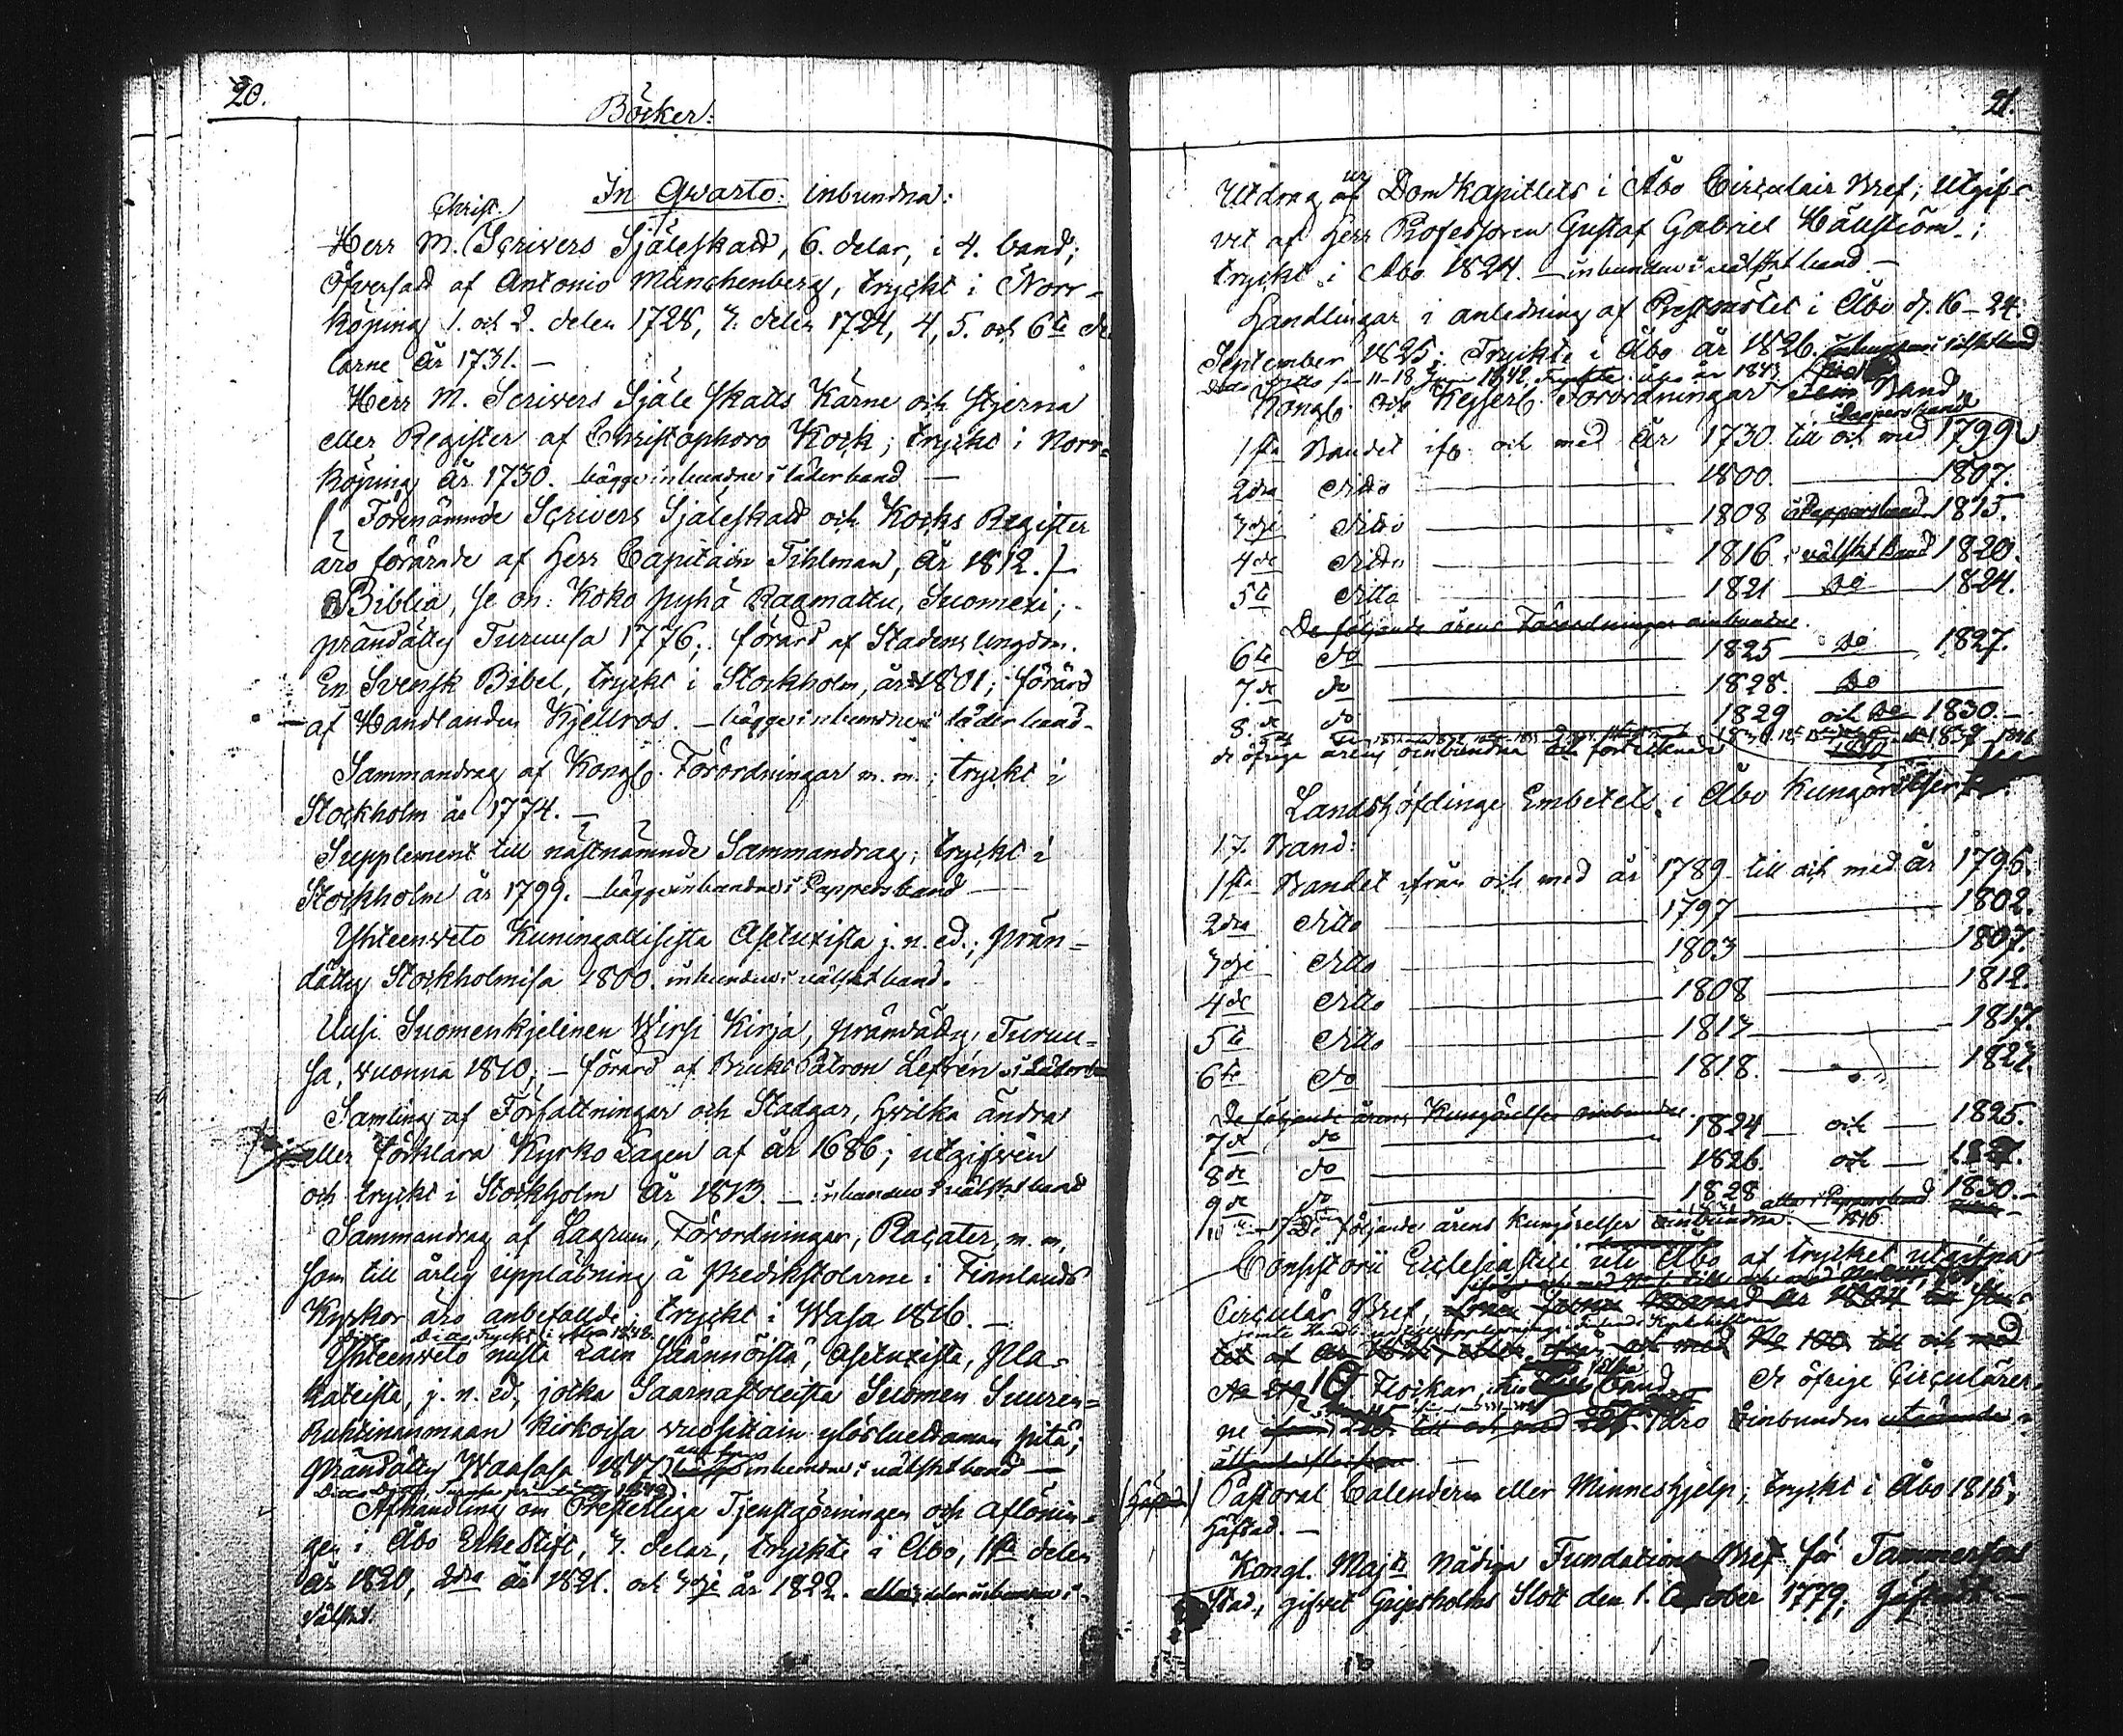 20.
Böcker:
In Qvarto: inbundna:
Christ.
Herr M. Scrivers Själeskatt, 6. delar, i 4. band;
öfversatt af Antonio Münchenberg, tryckt i Norr-
köping 1. och 2. delen 1728, 3. delen 1724, 4, 5. och 6te de
larne år 1731. —
Herr M. Scrivers Själe skatts Kärne och Stjerna
eller Register af Christophoro Kock; tryckt i Norr-
köping år 1730. bägge inbundne i läder band —
Förenämnde Scrivers Själeskatt och Kocks Register
äro förärade af Herr Capitain Tihlman, år 1812. —
Biblia, se on: Koko pyhä Raamattu, Suomexi;
prändätty Turusa 1776; förärd af Stadens Ungdom.
En Svensk Bibel, tryckt i Stockholm, år 1801; förärd
af Handlanden Kjellros. — bägge inbundne i läder band -
Sammandrag af Kongl. Förordningar m. m.; tryckt i
Stockholm år 1774. —
Supplement till nästnämnde Sammandrag; tryckt i
Stockholm år 1799. — bägge inbundne i Pappersband —
Yhteenveto Kuningallisista Asetuxista j. n. ed.; prän-
dätty Stockholmisa 1800. inbunden i välskt band.
Uusi Suomenkjelinen Wirsi Kirja, prändätty Turuu-
sa, vuonna 1810; — förärd af Bruks Patron Lefrén i Läder
Samling af Författningar och Stadgar, hvilka ändra
eller förklara Kyrko Lagen af år 1686; utgifven
och tryckt i Stockholm år 1813. — inbunden i välskt band
Sammandrag af Lagrum, Förordningar, Placater, m. m.
som till årlig uppläsning å Predikstolarne i Finlands
Kyrkor äro anbefallde, tryckt i Wasa 1816. —
Ditto tryckt i Åbo 1848.
Yhteenveto niistä Lain Säännöistä, Asetuxista, Pla-
kateista, j. n. ed, jotka Saarnastoleista Suomen Suuren-
Ruhtinanmaan Kirkoisa vuosittain ylösluettaman pitä;
Prändätty Waasasa 1817. inbundne i välskt band —
Afhandling om Presterliga Tjenstgörningen och Aflönin-
gen i Åbo Erke Stift, 3. delar, tryckte i Åbo, 1sta delen
år 1820, 2dra år 1821. och 3dje år 1822. alla delar inbundna i
välskt.
21.
Utdrag ur Dom Kapitlets i Åbo Circulair Bref; Utgif-
vet af Herr Professoren Gustaf Gabriel Hällström;
tryckt i Åbo 1824. — inbunden i välskt band —
Handlingar i anledning af Prestmötet i Åbo d. 16 - 24.
September 1825; Tryckte i Åbo år 1826. inbunden i välskt band
Kongl. och Kejserl. Förordningar Band
i Pappersband
1sta Bandet ifr. och med år 1730 till och med 1799
2dra ditto 1800. 1807.
3dje ditto 1808 i Pappersband 1815.
4de ditto 1816 i välskt Band 1820.
5te ditto 1821 Do 1824.
De följande årens Förordningar oinbundne.
6te do 1825 Do 1827.
7.de do 1828. Do
8.de do 1829 och Do 1830. —
de öfrige årens oinbundna
Landshöfdinge Embetets i Åbo Kungörelser
17. Band:
1sta Bandet ifrån och med år 1789 till och med år 1796.
2dra ditto 1797 1802.
3dje ditto 1803 1807.
4de ditto 1808 1812.
5te ditto 1813 1817.
6te do 1818. 1823.
De följande årens Kungörelser oinbundne.
7de do 1824 och 1825.
8de do 1826. och 1827.
9de do 1828 1830. —
De följande årens kungörelser oinbundna
Consistorii Ecclesiastici uti Åbo af trycket utgifna
Circulär Bref,
Flockar, band de öfrige Circulärer-
ne äro oinbundne
Pastoral Calendern eller Minneshjelp; tryckt i Åbo 1815,
häftad. —
Kongl. Maj:ts Nådiga Fundations Bref för Tammerfors
Stad, gifvet Gripsholms Slott den 1. October 1779; häftadt —